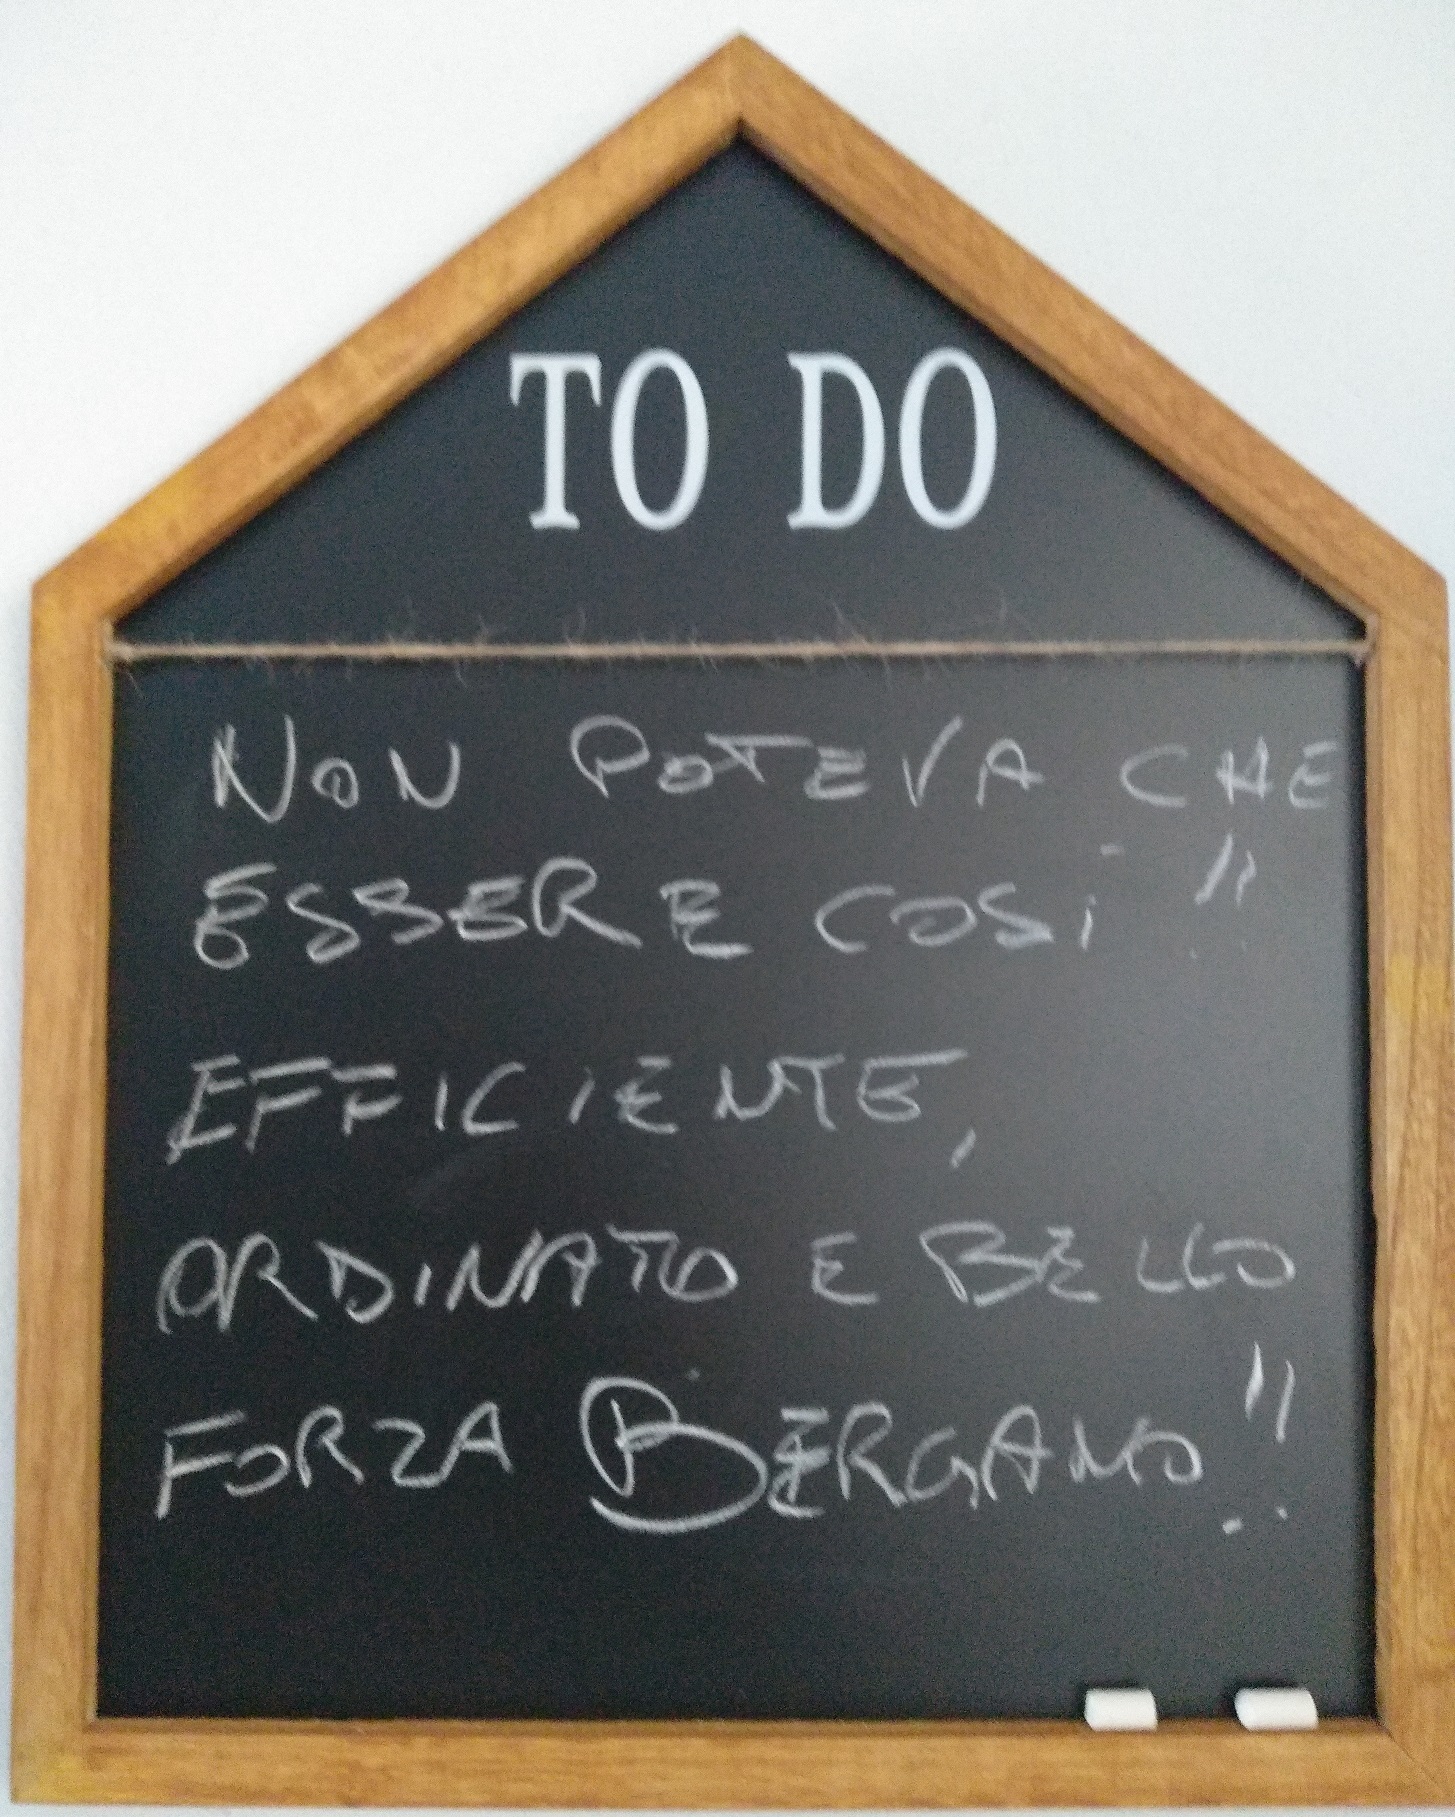 TO DO
NON POTEVA CHE
ESSERE COSÌ !!
EFFICIENTE,
ORDINATO E BELLO
FORZA BERGAMO!!